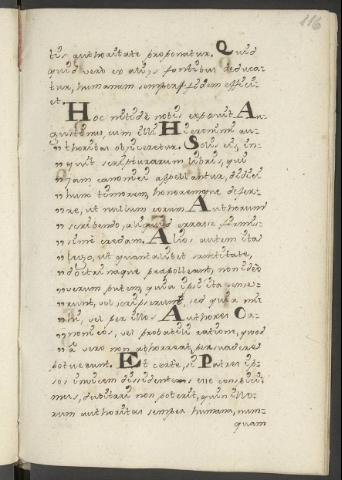 116
tis authoritate proponatur. Quid
quid vero ex aliis fontibus deduca-
tur, humanam semper fidem effici-
et.
Hoc nitide nobis exposuit Au-
gustinus, cum illi Hieronimi au-
" thoritas objiceretur. Solis eis, in-
" quit scripturarum libris, qui
" jam canonici appellantur, didici
" hunc timorem, honoremque defer-
" re, ut nullum eorum Authorum
" scribendo, aliquid errasse firmis-
" sime credam. Alios autem ita
" lego, ut quantalibet sanctitate,
" doctrinaque praepolleant, non ideo
" verum putem, quia ipsi ita sense-
" runt, vel scripserunt, sed quia mi-
" hi, vel per illos Authores Ca-
" nonicos, vel probabili ratione, quod
" a vero non abhorreat, persuadere
potuerunt. Et certe, si Patres ip-
sos invicem dissidentes esse conspici-
mus, dubitari non poterit, quin illo-
rum authoritas semper humana, num-
quam